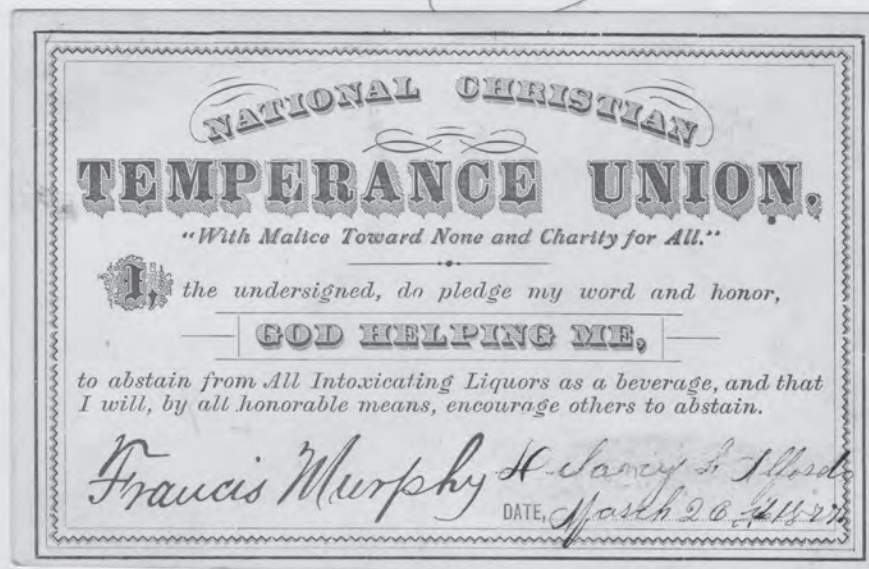 NATIONAL CHRISTIAN
TEMPERANCE UNION.
"With Malice Toward None and Charity for All."
I, the undersigned, do pledge my word and honor,
GOD HELPING ME,
to abstain from All Intoxicating Liquors as a beverage, and that
I will, by all honorable means, encourage others to abstain.
Francis Murphy
DATE, March 26